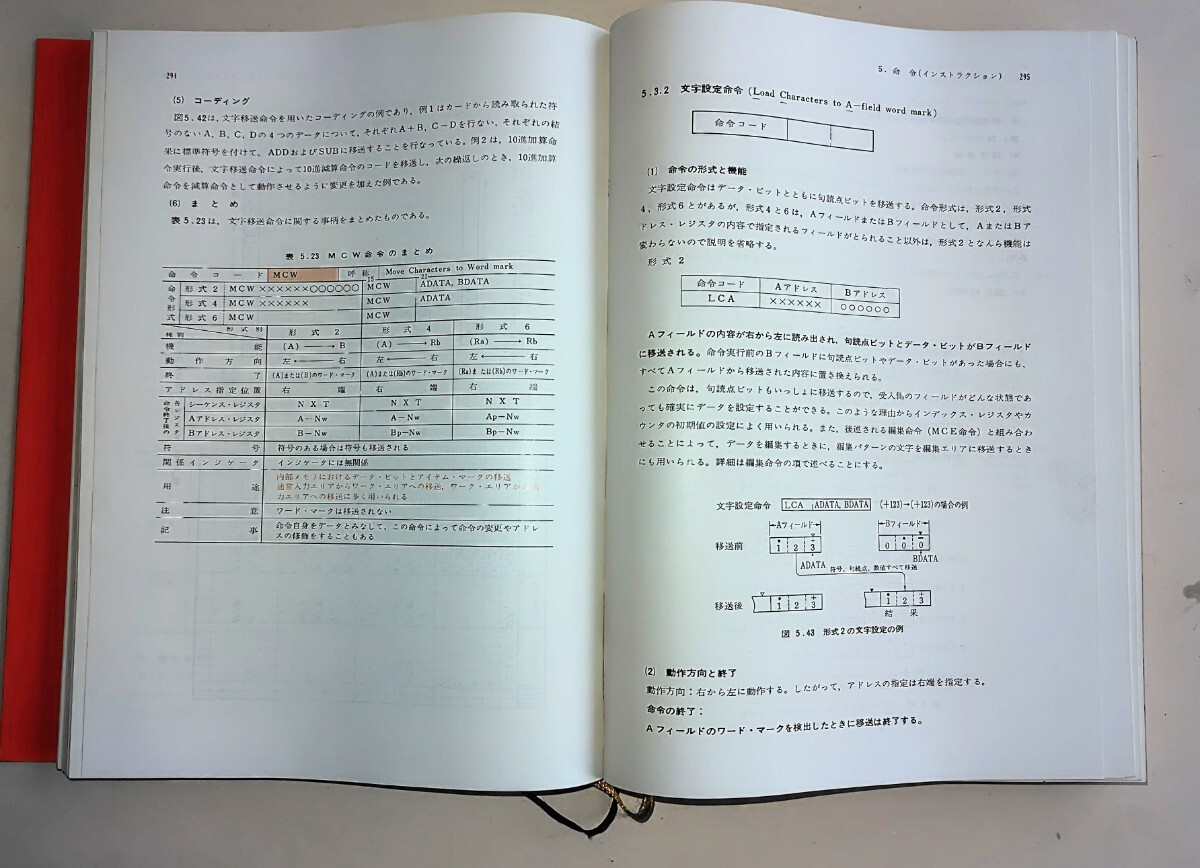 294
(5) コーディング
図5.42は，文字移送命令を用いたコーディングの例であり，例1はカードから読み取られた符
号のないA，B，C，Dの4つのデータについて，それぞれA＋B，C－Dを行ない，それぞれの結
果に標準符号を付けて，ADDおよびSUBに移送することを行なっている。例2は，10進加算命
令実行後，文字移送命令によって10進減算命令のコードを移送し，次の繰返しのとき，10進加算
命令を減算命令として動作させるように変更を加えた例である。
(6) まとめ
表5.23は，文字移送命令に関する事柄をまとめたものである。
表 5.23 MCW命令のまとめ
命令コード MCW 呼称 Move Characters to Word mark
命令形式 形式2 MCW ××××××○○○○○○ 15 MCW 21 ADATA, BDATA
形式4 MCW ×××××× MCW ADATA
形式6 MCW MCW
種別 形式別 形式2 形式4 形式6
機能 (A) → B (A) → Rb (Ra) → Rb
動作方向 左 ← 右 左 ← 右 左 ← 右
終了 (A)または(B)のワード・マーク (A)または(Rb)のワード・マーク (Ra)または(Rb)のワード・マーク
アドレス指定位置 右端 右端 右端
命令終了後の各レジスタ シーケンス・レジスタ NXT NXT NXT
Aアドレス・レジスタ A－Nw A－Nw Ap－Nw
Bアドレス・レジスタ B－Nw Bp－Nw Bp－Nw
符号 符号のある場合は符号も移送される
関係インジケータ インジケータには無関係
用途 内部メモリにおけるデータ・ビットとアイテム・マークの移送
通常入力エリアからワーク・エリアへの移送，ワーク・エリアから
力エリアへの移送に多く用いられる
注意 ワード・マークは移送されない
記事 命令自身をデータとみなして，この命令によって命令の変更やアドレ
スの修飾をすることもある
5. 命令(インストラクション) 295
5.3.2 文字設定命令 (Load Characters to A-field word mark)
命令コード
(1) 命令の形式と機能
文字設定命令はデータ・ビットとともに句読点ビットを移送する。命令形式は，形式2，形式
4，形式6とがあるが，形式4と6は，AフィールドまたはBフィールドとして，AまたはBア
ドレス・レジスタの内容で指定されるフィールドがとられること以外は，形式2となんら機能は
変わらないので説明を省略する。
形式2
命令コード Aアドレス Bアドレス
LCA ×××××× ○○○○○○
Aフィールドの内容が右から左に読み出され，句読点ビットとデータ・ビットがBフィールド
に移送される。命令実行前のBフィールドに句読点ビットやデータ・ビットがあった場合にも，
すべてAフィールドから移送された内容に置き換えられる。
この命令は，句読点ビットもいっしょに移送するので，受入側のフィールドがどんな状態であ
っても確実にデータを設定することができる。このような理由からインデックス・レジスタやカ
ウンタの初期値の設定によく用いられる。また，後述される編集命令（MCE命令）と組み合わ
せることによって，データを編集するときに，編集パターンの文字を編集エリアに移送するとき
にも用いられる。詳細は編集命令の項で述べることにする。
文字設定命令 LCA ADATA, BDATA (+123)→(+123)の場合の例
Aフィールド Bフィールド
移送前 1 2 3 0 0 0
ADATA BDATA
符号，句読点，数値すべて移送
移送後 1 2 3 1 2 3
結果
図 5.43 形式2の文字設定の例
(2) 動作方向と終了
動作方向：右から左に動作する。したがって，アドレスの指定は右端を指定する。
命令の終了：
Aフィールドのワード・マークを検出したときに移送は終了する。